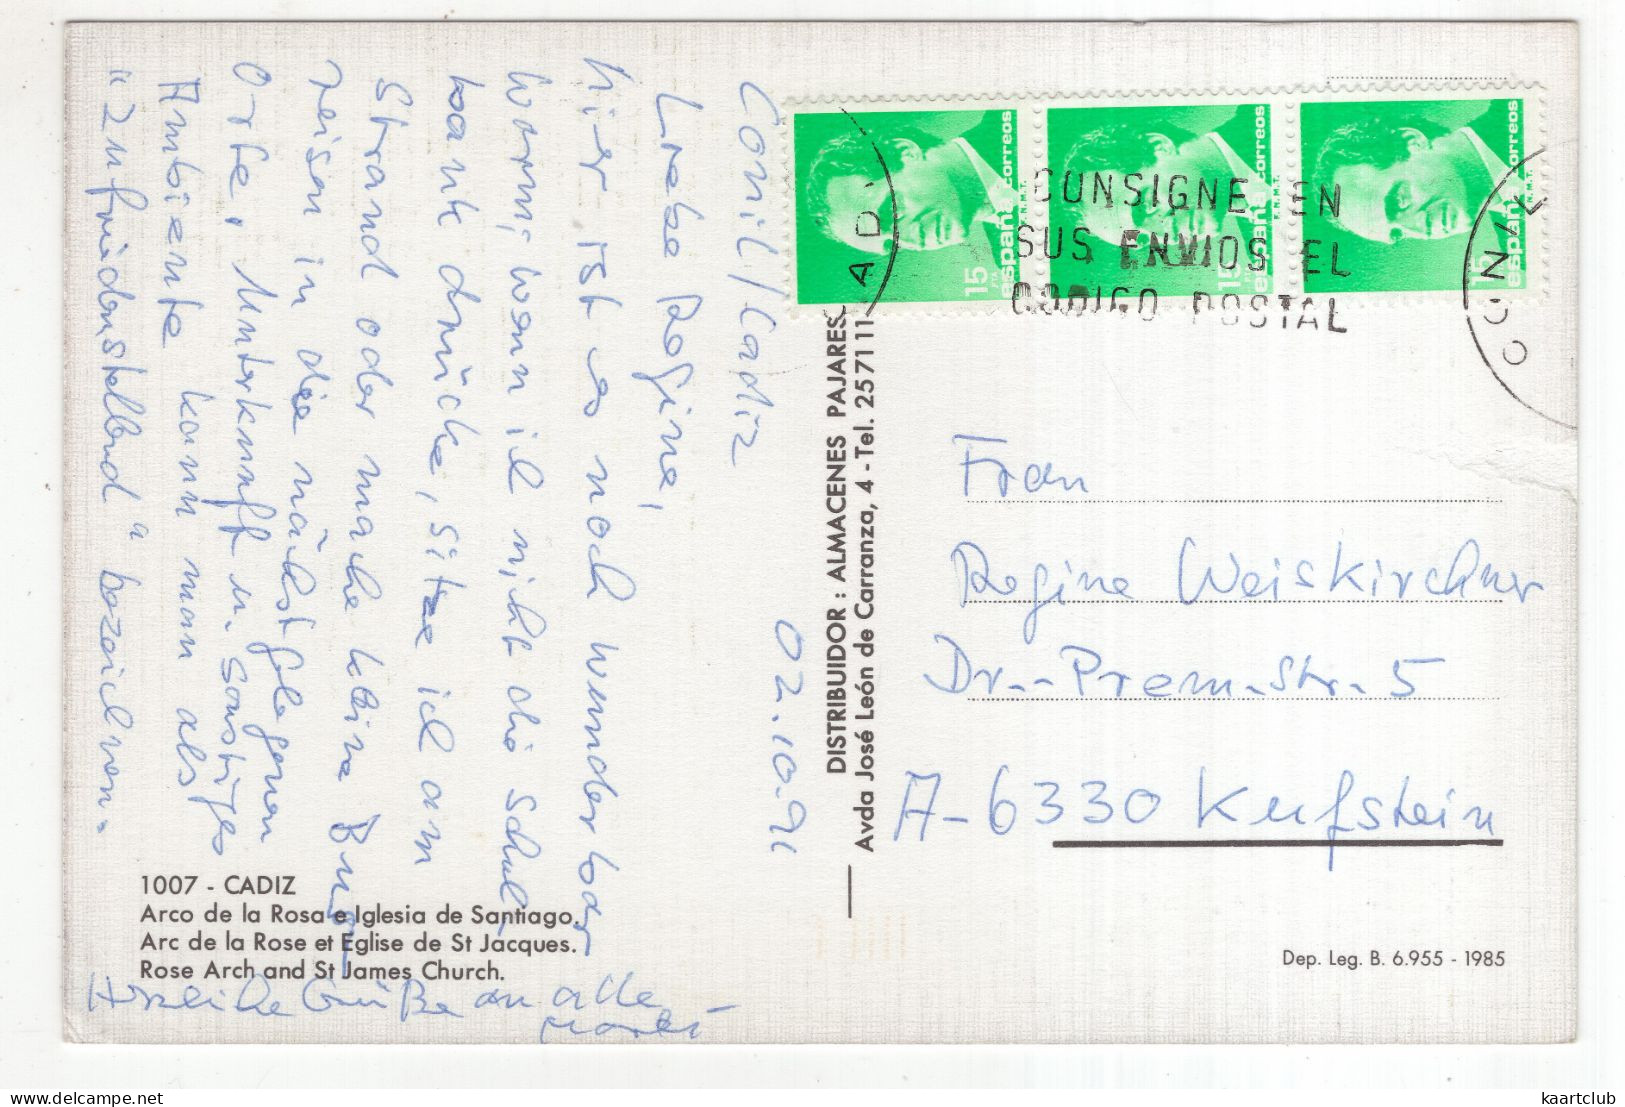 Conil/Cadiz 02.10.91
Liebe Regine,
hier ist es noch wunderbar
warm; wenn ich nicht die Schul-
bank drücke, sitze ich am
Strand oder mache kleine
Reisen in die nächstgelegenen
Orte. Unterkunft u. sonstiges
Ambiente kann man als
"zufriedenstellend" bezeichnen.
Herzliche Grüße an alle
España correos
15 PTA
F.N.M.T.
España correos
15 PTA
F.N.M.T.
España correos
15
N.M.T.
CONSIGNE EN
SUS ENVIOS EL
CODIGO POSTAL
CONIL
CAD
DISTRIBUIDOR : ALMACENES PAJARES
Avda José León de Carranza, 4 - Tel. 25 71 11
Frau
Regine Weiskirchner
Dr.-Prem-Str. 5
A-6330 Kufstein
1007 - CADIZ
Arco de la Rosa e Iglesia de Santiago.
Arc de la Rose et Eglise de St Jacques.
Rose Arch and St James Church.
Dep. Leg. B. 6.955 - 1985
kaartclub